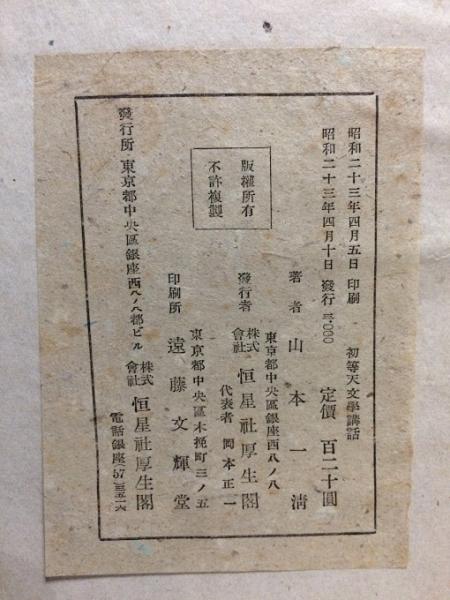 昭和二十三年四月五日 印刷
初等天文學講話
昭和二十三年四月十日 發行 三,〇〇〇
定價 百二十圓
著者 山本一淸
版權所有
不許複製
東京都中央區銀座西八ノ八
發行者 株式會社 恒星社厚生閣
代表者 岡本正一
東京都中央區木挽町三ノ五
印刷所 遠藤文輝堂
發行所 東京都中央區銀座西八ノ八都ビル
株式會社 恒星社厚生閣
電話銀座(57)